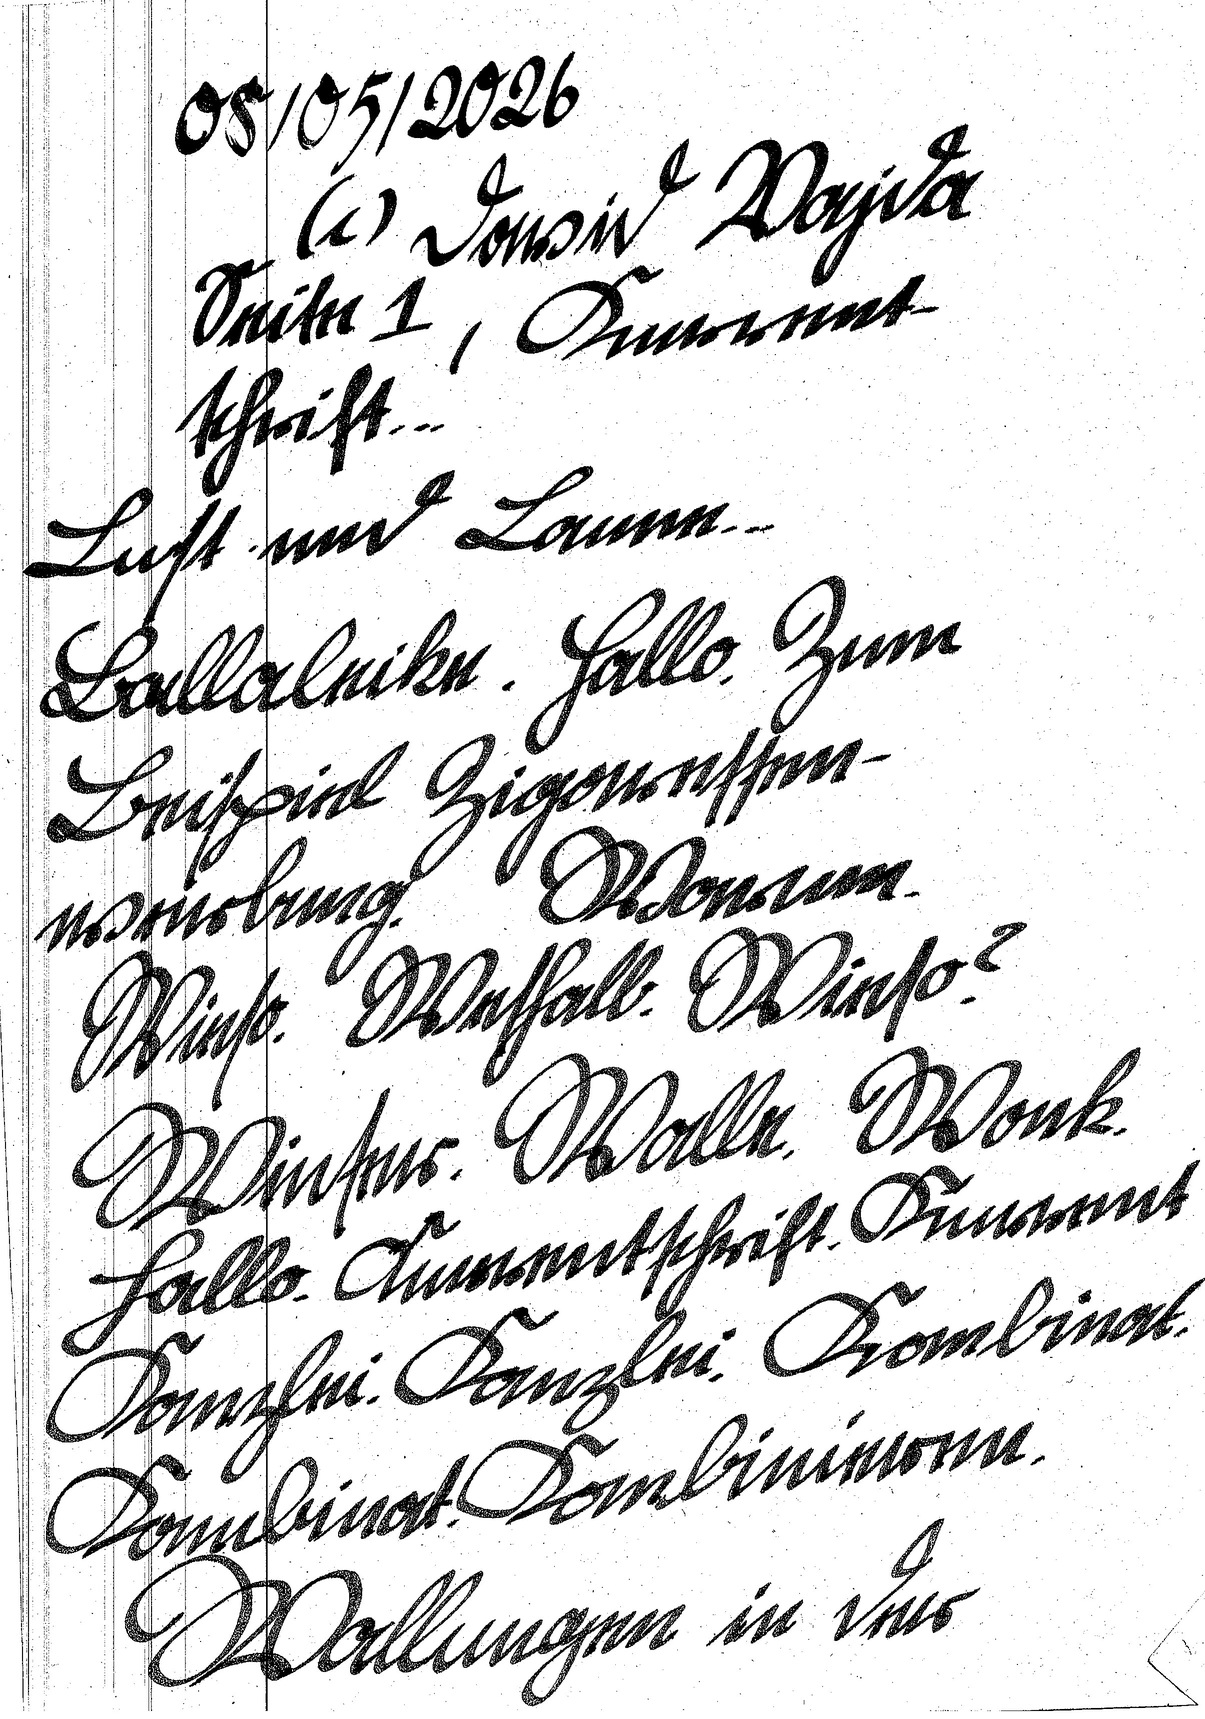 08/05/2026
(c) David Vajda
Seite 1, Kurrent-
schrift...
Luft und Laune...
Ballaleike. Hallo. Zum
Beispiel Zigaretten-
werbung. Warum.
Wieso. Weshalb. Wieso?
Wieser. Walle. Wank.
Hallo. Kurrentschrift. Kurrent
Kanzlei. Kanzlei. Kombinat.
Kombinat. Kombinieren.
Wallungen in der